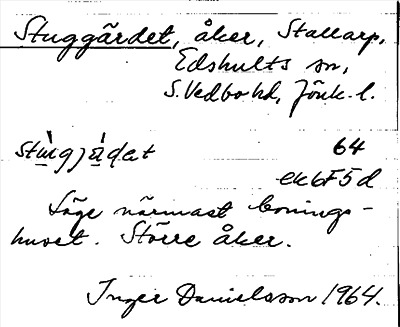 Stuggärdet, åker, Stallarp,
Edshults sn,
S. Vedbo hd, Jönk. l.
64
ek 6F5d
Läge närmast bonings-
huset. Större åker.
Inger Danielsson 1964.